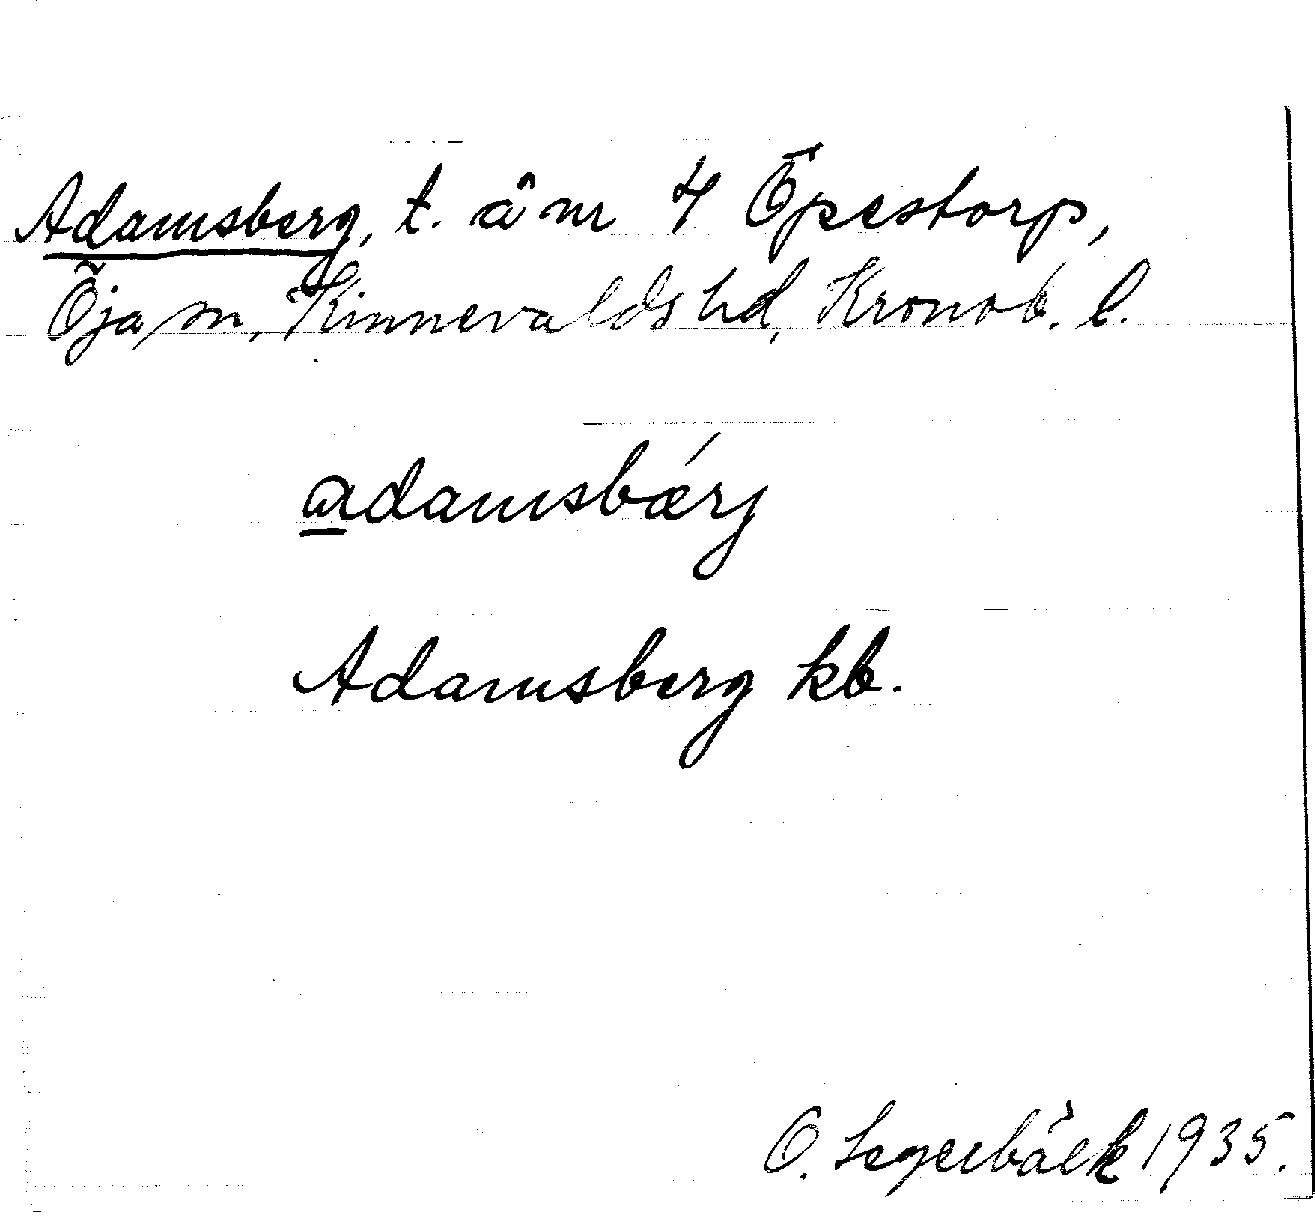 Adamsberg, t. å nr 4 Öpestorp,
Öja sn, Kinnevalds hd, Kronob. l.
adamsbǽrj
Adamsberg kb.
O. Segerbäck 1935.